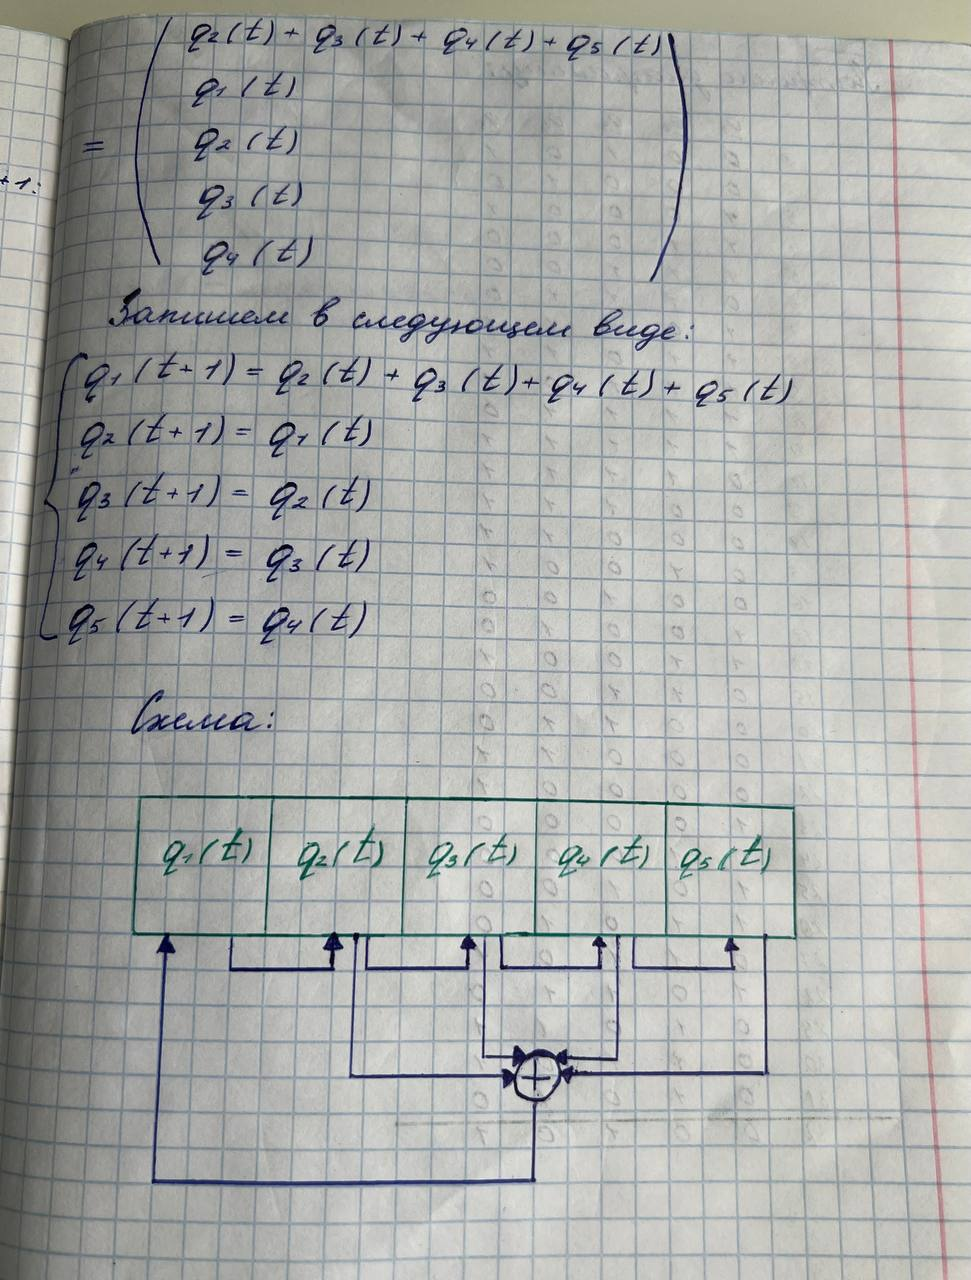 q2(t) + q3(t) + q4(t) + q5(t)
q1(t)
=
q2(t)
+1:
q3(t)
q4(t)
Запишем в следующем виде:
q1(t+1) = q2(t) + q3(t) + q4(t) + q5(t)
q2(t+1) = q1(t)
q3(t+1) = q2(t)
q4(t+1) = q3(t)
q5(t+1) = q4(t)
Схема:
q1(t) q2(t) q3(t) q4(t) q5(t)
+